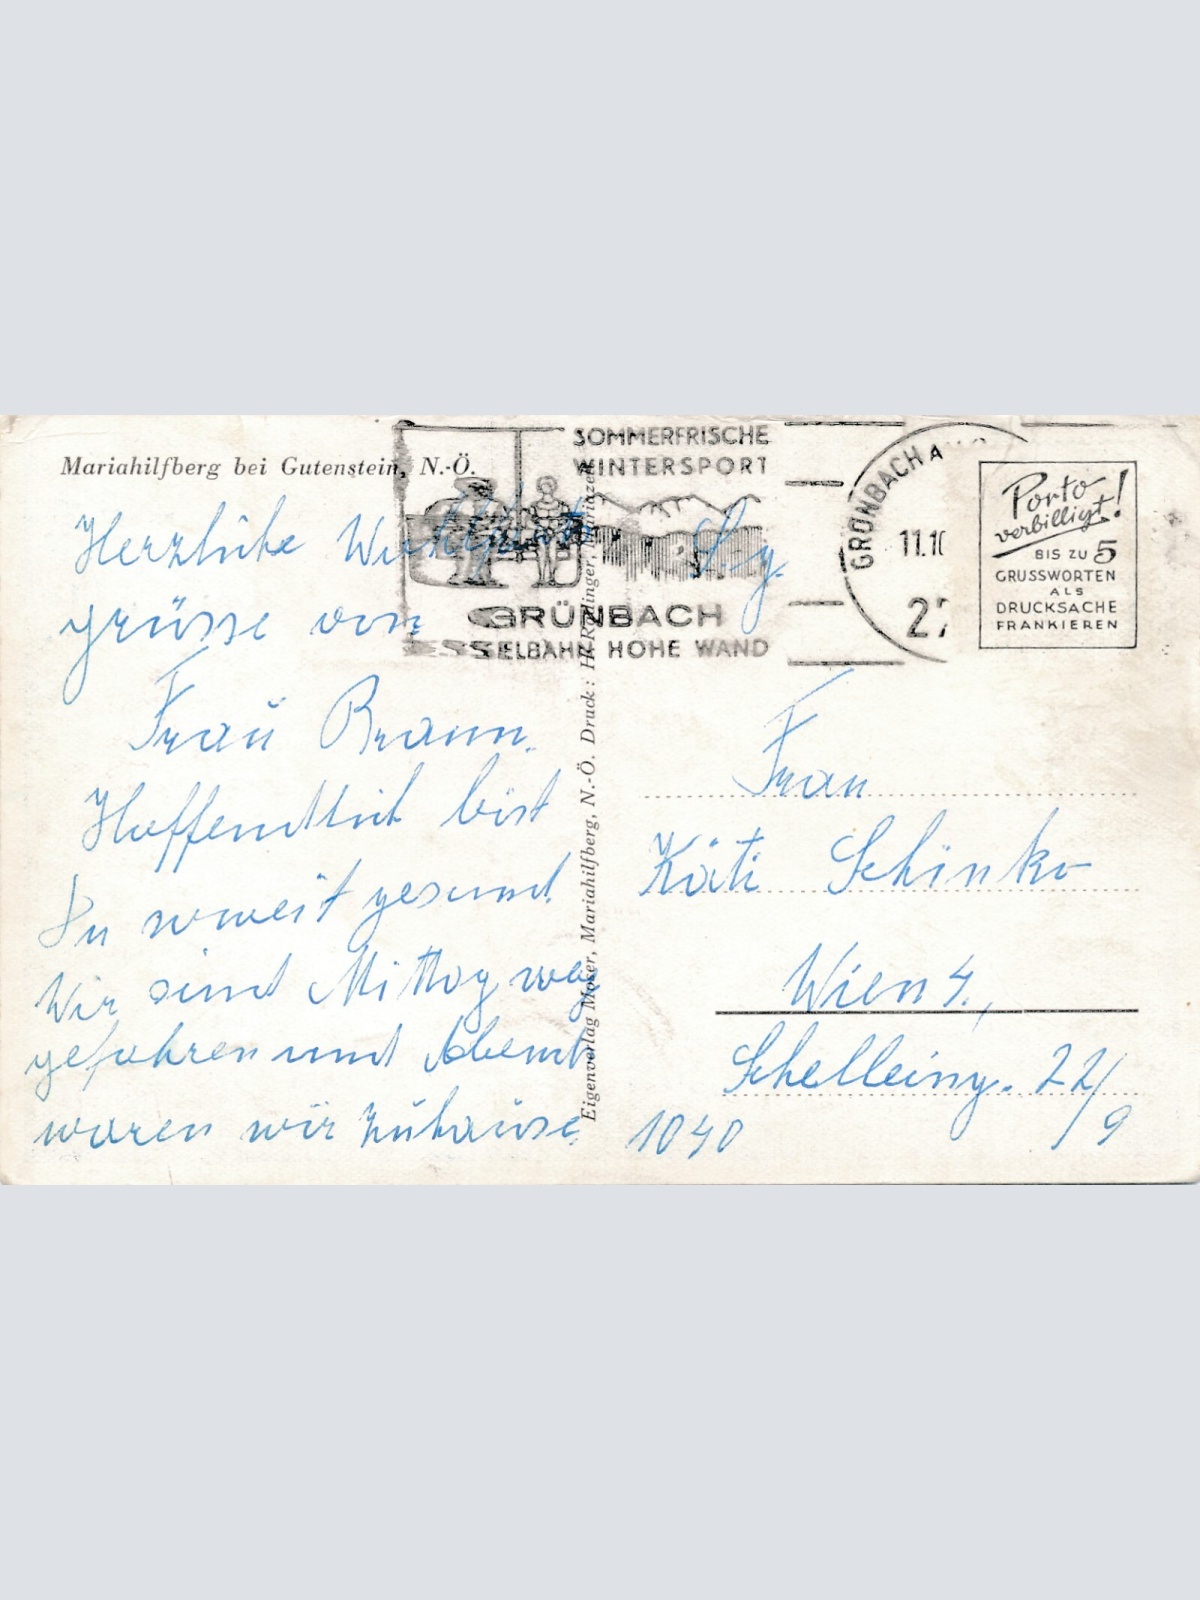 Mariahilfberg bei Gutenstein, N.-Ö.
SOMMERFRISCHE
WINTERSPORT
GRÜNBACH
SESSELBAHN HOHE WAND
GRÜNBACH A
11.10
27
Porto
verbilligt!
BIS ZU 5
GRUSSWORTEN
ALS
DRUCKSACHE
FRANKIEREN
Herzliche
grüsse von
Frau Braun.
Hoffentlich bist
Du soweit gesund.
Wir sind Mittag weg
gefahren und Abend
waren wir zuhause
Eigenverlag Moser, Mariahilfberg, N.-Ö. Druck: Mariazell
Frau
Käti Schinko
Wien 4.,
Schelleing. 22/
1040 / 9